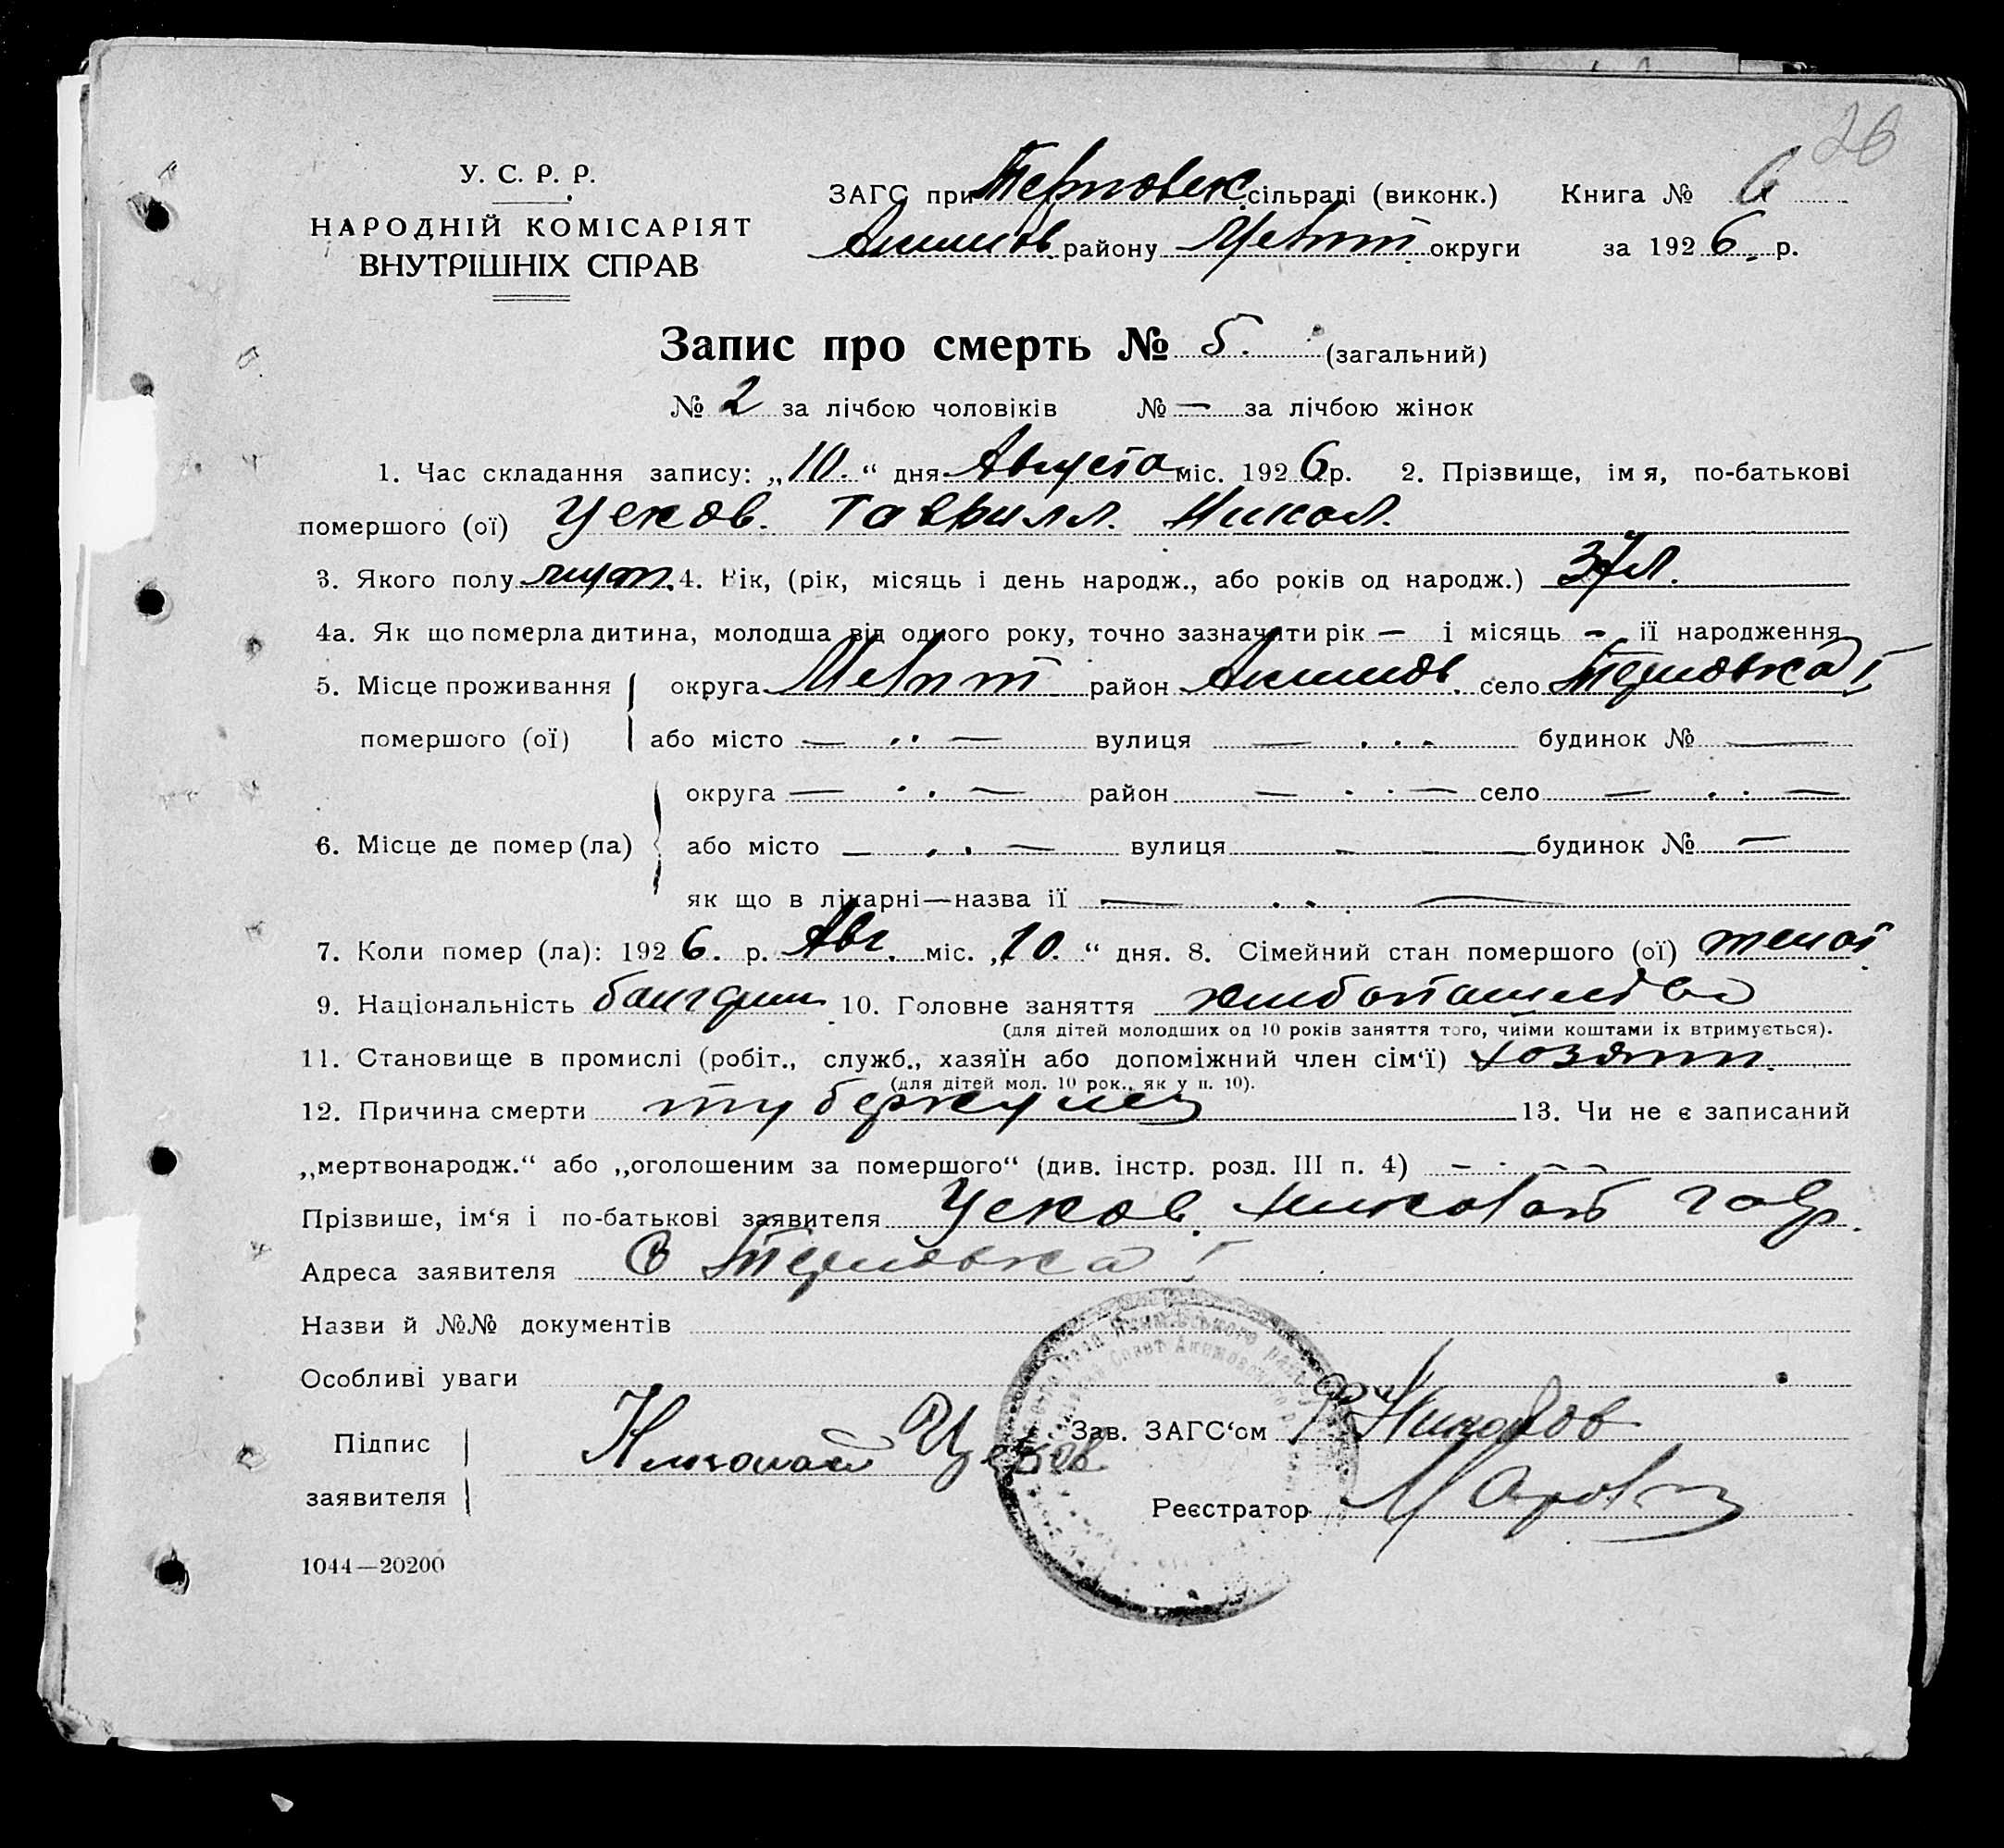 26
У. С. Р. Р.
НАРОДНІЙ КОМІСАРІЯТ
ВНУТРІШНІХ СПРАВ
ЗАГС при Терновск. сільраді (виконк.) Книга № 6
Акимов. району Мелит. округи за 1926 р.
Запис про смерть № 5. (загальний)
№ 2 за лічбою чоловіків № — за лічбою жінок
1. Час складання запису: „10.“ дня Августа міс. 1926 р. 2. Прізвище, імя, по-батькові
помершого (ої) Усков. Гаврилл. Никол.
3. Якого полу муж. 4. Вік, (рік, місяць і день народж., або років од народж.) 37 л.
4а. Як що померла дитина, молодша від одного року, точно зазначити рік — і місяць - її народження
5. Місце проживання округа Мелит район Акимов. село Терновка I
помершого (ої) або місто — вулиця — будинок № —
округа — район — село —
6. Місце де помер (ла) або місто — вулиця — будинок № —
як що в лікарні—назва її —
7. Коли помер (ла): 1926. р. Авг. міс. „10.“ дня. 8. Сімейний стан помершого (ої) женат
9. Національність 10. Головне заняття хлибопашество
(для дітей молодших од 10 років заняття того, чиїми коштами їх втримується).
11. Становище в промислі (робіт., служб., хазяїн або допоміжний член сім‘ї) хозяин.
(для дітей мол. 10 рок., як у п. 10).
12. Причина смерти туберкулез 13. Чи не є записаний
„мертвонародж.“ або „оголошеним за помершого“ (див. інстр. розд. III п. 4) —
Прізвише, ім‘я і по-батькові заявителя Усков. Николай Гавр.
Адреса заявителя С Терновка I
Назви й №№ документів
Особливі уваги
Підпис
заявителя Николай Усков
Зав. ЗАГС‘ом
Реєстратор
1044—20200